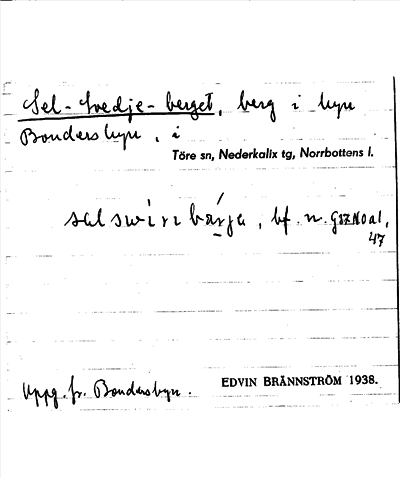 Sel-Svedje-berget, berg i byn
Bondersbyn, i
Töre sn, Nederkalix tg, Norrbottens l.
bf. n.
47
Uppg. fr. Bondersbyn.
EDVIN BRÄNNSTRÖM 1938.